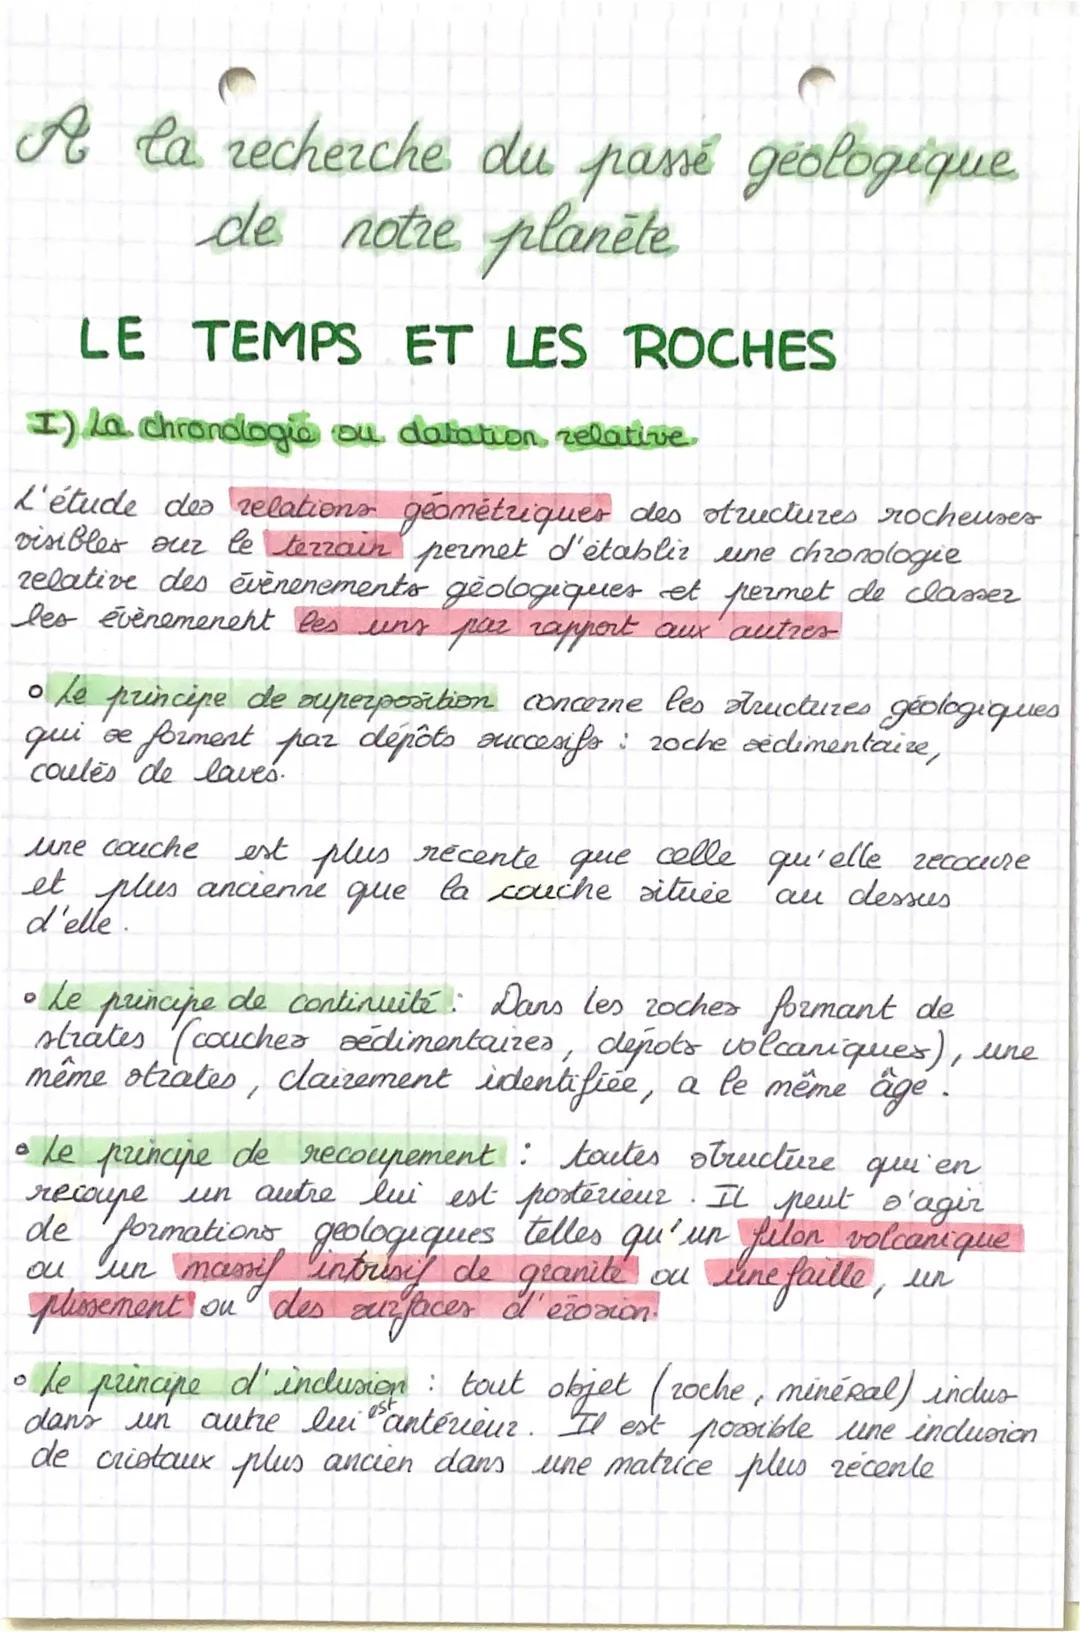 A la recherche du passé géologique
de notre planète
LE TEMPS ET LES ROCHES
I) La chronologie ou datation relative
L'étude des relations géométriques des structures rocheuses
visibles sur le terrain permet d'établir une chronologie
relative des évènenements géologiques et permet de classer
les évènemenent les uns par rapport aux autres
• Le principe de superposition concerne les structures géologiques
qui se forment par dépôts succesifs : roche sédimentaire,
coulés de laves.
une couche est plus récente que celle qu'elle recouvre
et plus ancienne que la couche située au dessus
d'elle.
• Le principe de continuité : Dans les roches formant de
strates (couches sédimentaires, dépots volcaniques), une
même strates, clairement identifiée, a le même âge.
• Le principe de recoupement : toutes structure qui en
recoupe un autre lui est postérieur. Il peut s'agir
de formations géologiques telles qu'un filon volcanique
ou un massif intrusif de granite ou une faille, un
plissement ou des surfaces d'érosion.
• Le principe d'inclusion : tout objet (roche, minéral) inclus
dans un autre lui est antérieur. Il est possible une inclusion
de cristaux plus ancien dans une matrice plus récente